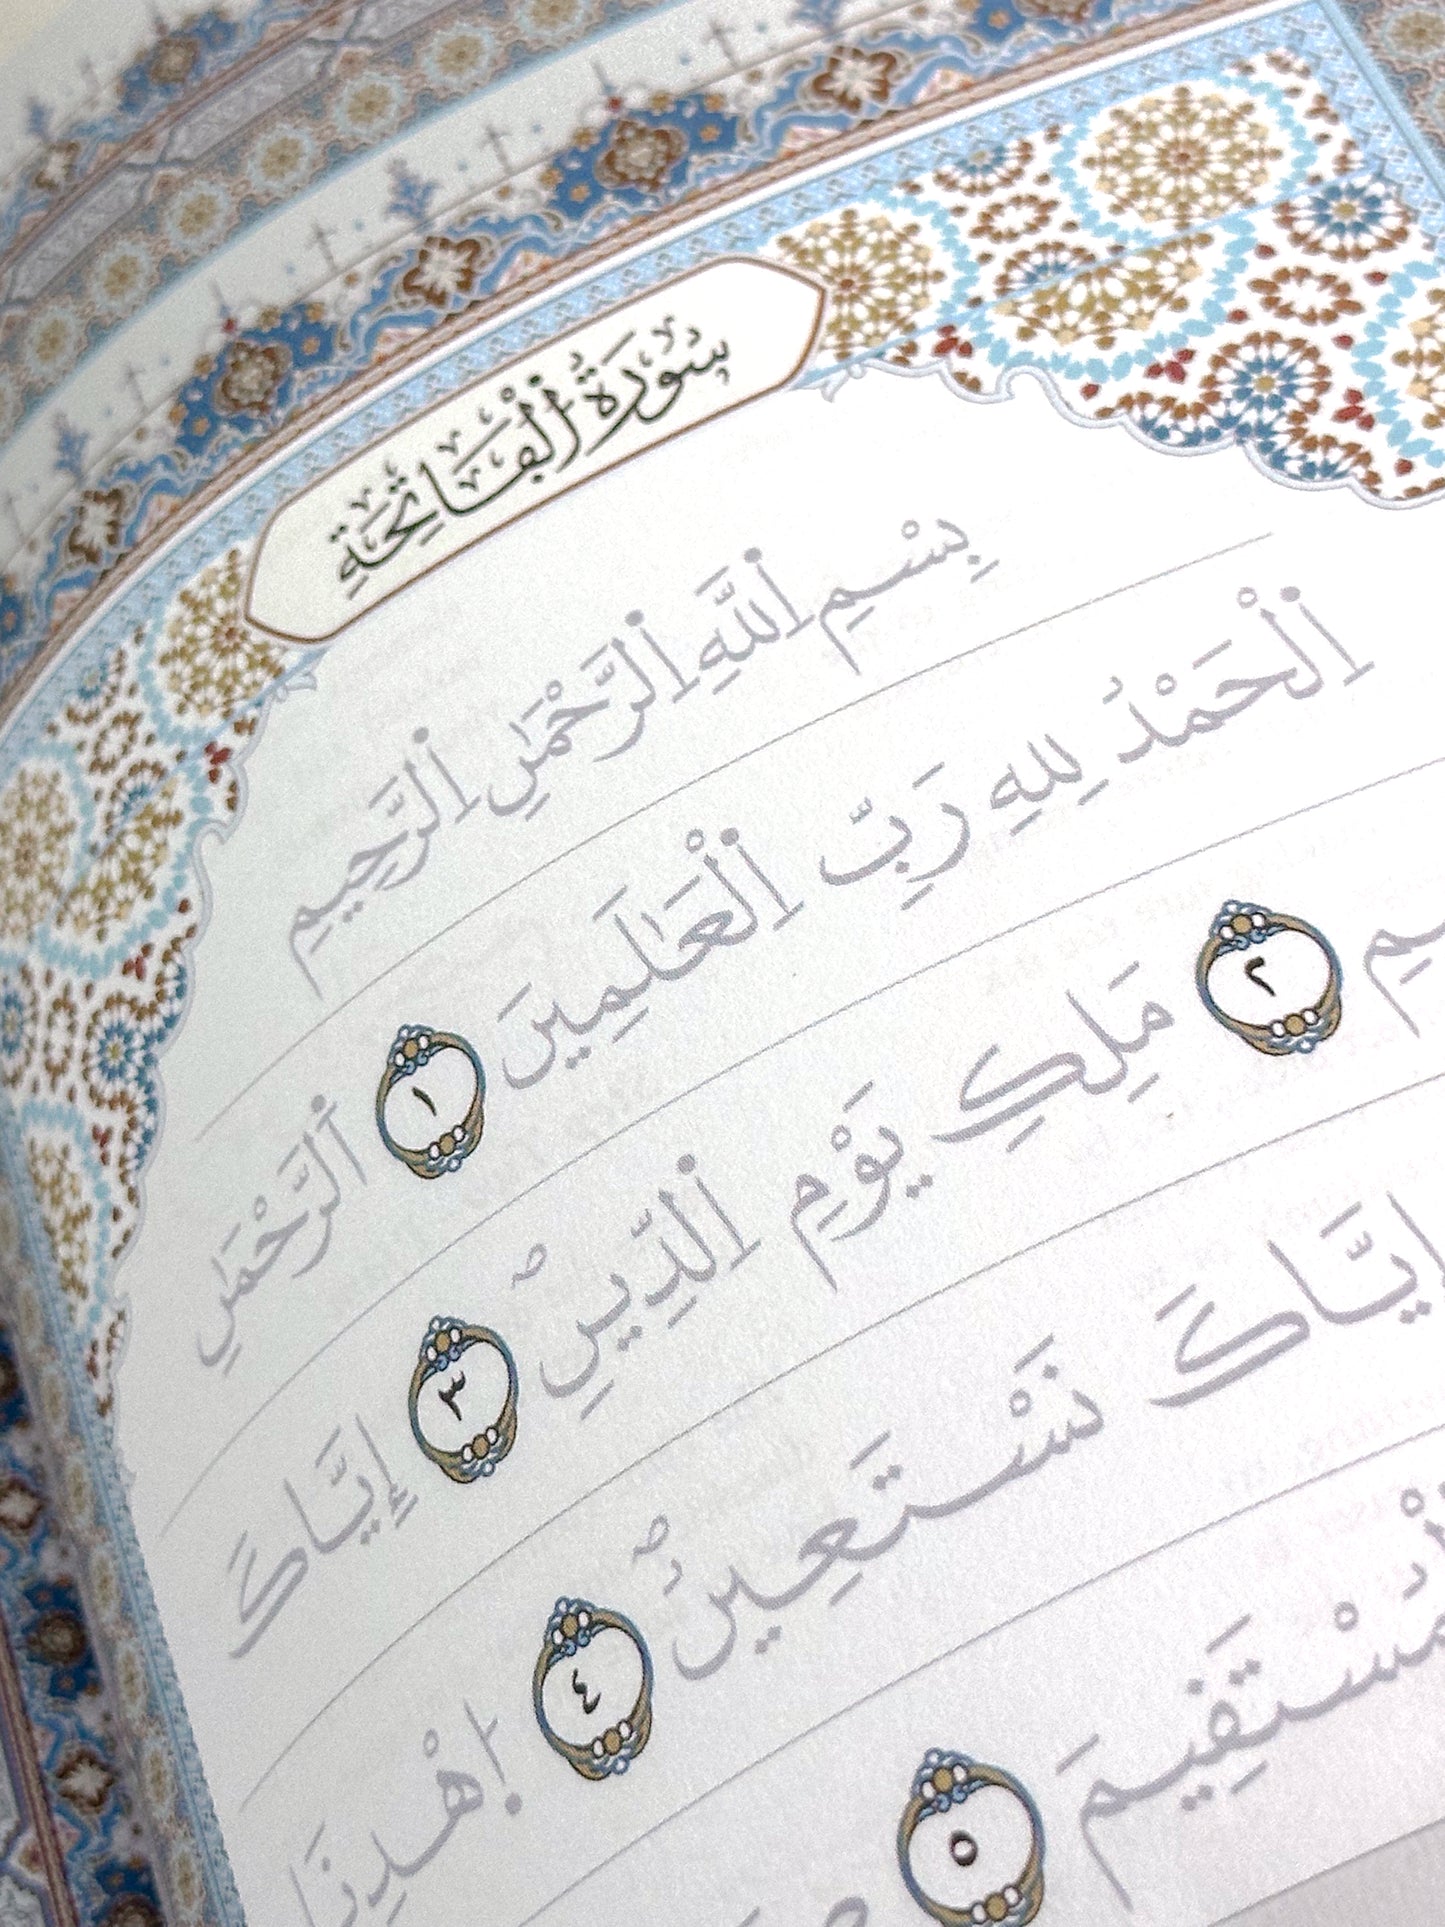 سُورَةُ اُ۬لْفَاتِحَةِ
بِسْمِ اِ۬للَّهِ اِ۬لرَّحْمَٰنِ اِ۬لرَّحِيمِ
اِ۬لْحَمْدُ لِلهِ رَبِّ اِ۬لْعَٰلَمِينَ ١ اَ۬لرَّحْمَٰنِ
٢ مَلِكِ يَوْمِ اِ۬لدِّينِۖ ٣ إِيَّاكَ
إِيَّاكَ نَسْتَعِينُۖ ٤ اِ۪هْدِنَا
اَ۬لْمُسْتَقِيمَ ٥